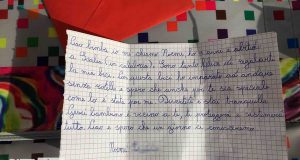 Ciao bimba io mi chiamo Noemi, ho anni e abito
a (in calabria). Sono tanto felice di regalarti
la mia bici. Con questa bici ho imparato ad andare
senza rotelle e spero che anche per te sia speciale
come lo è stata per me. Divertiti e stai tranquilla
Gesù bambino è vicino a te, ti proteggerà e sistemerà
tutto. Ciao e spero che un giorno ci conosceremo.
Noemi